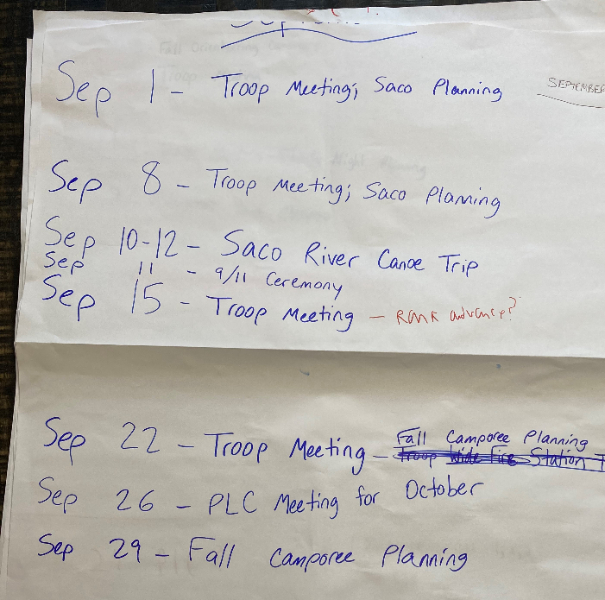 SEPTEMBER
Sep 1 - Troop Meeting; Saco Planning
Sep 8 - Troop Meeting; Saco Planning
Sep 10-12 - Saco River Canoe Trip
Sep 11 - 9/11 Ceremony
Sep 15 - Troop Meeting - Rank advance?
Sep 22 - Troop Meeting - Fall Camporee Planning
Troop Wide Fire Station
Sep 26 - PLC Meeting for October
Sep 29 - Fall Camporee Planning